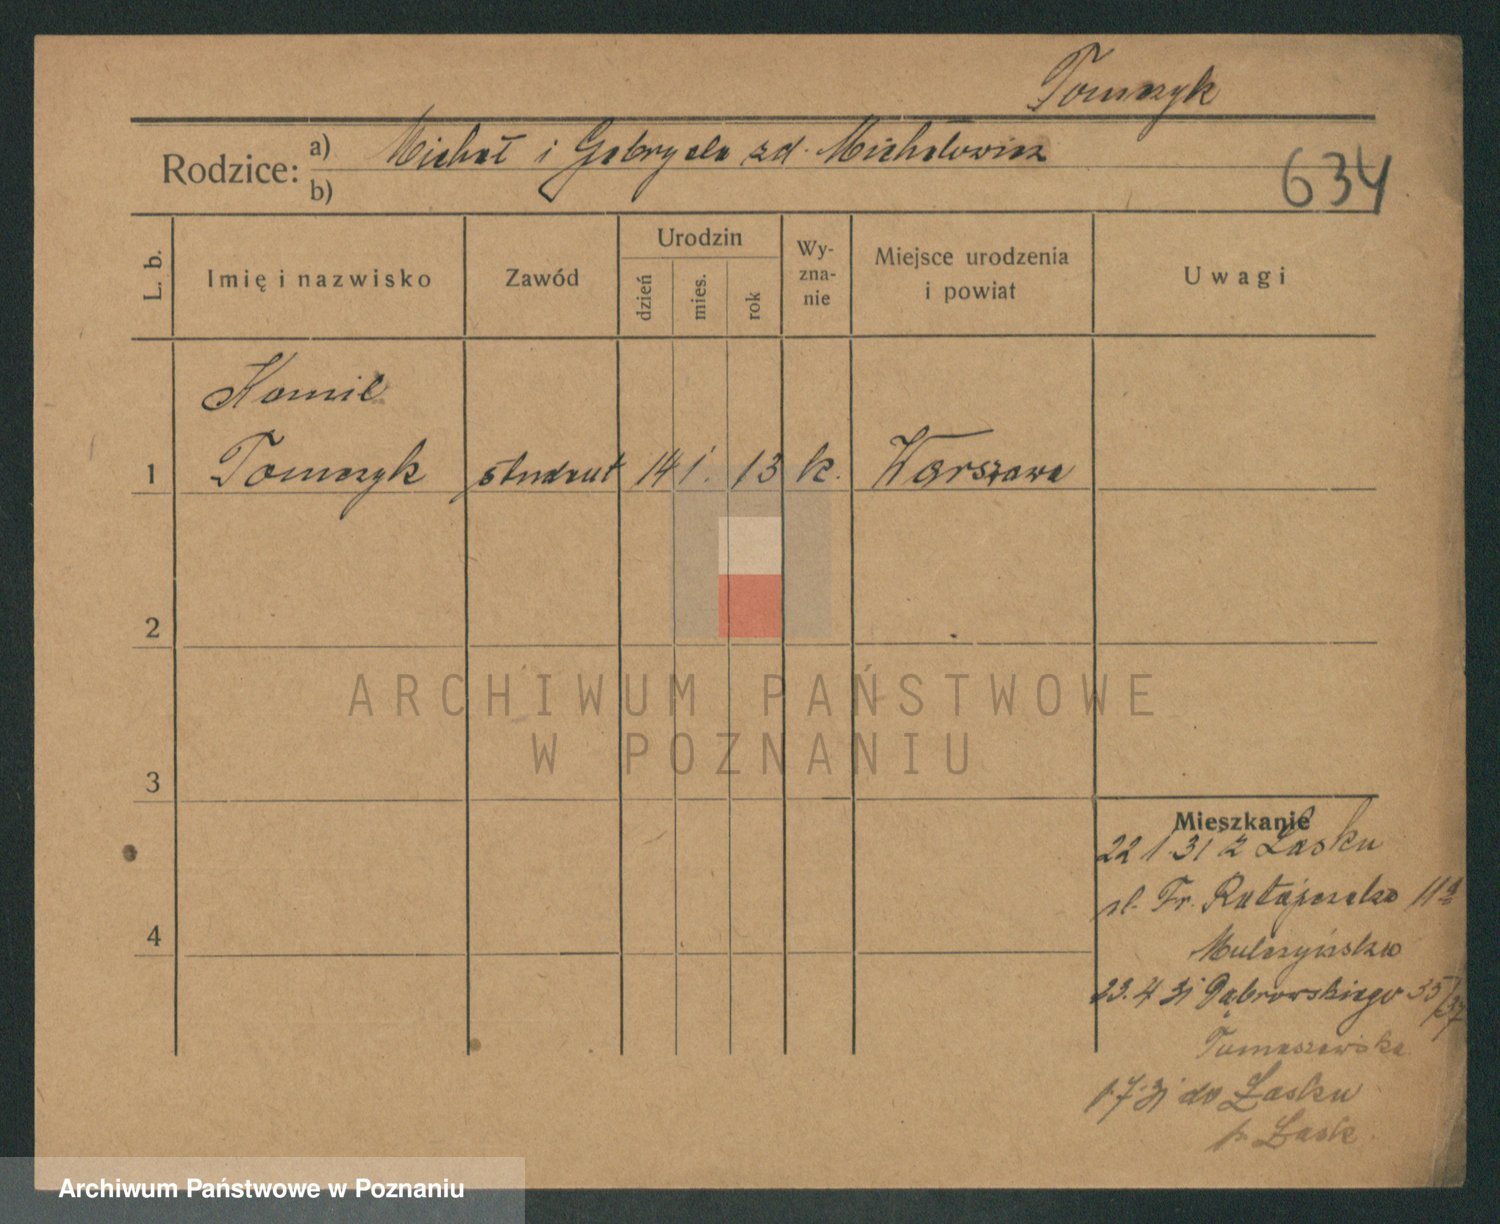 Tomczyk
Rodzice: a) Michał i Gabryela zd. Michałowicz
b)
634
L. b.
Imię i nazwisko
Zawód
Urodzin
dzień
mies.
rok
Wy-
zna-
nie
Miejsce urodzenia
i powiat
Uwagi
Kamil
1 Tomczyk student 14 1. 13 k. Warszawa
2
ARCHIWUM PAŃSTWOWE
W POZNANIU
3
Mieszkanie
22 1 31 z Łasku
Fr. Ratajczaka 11a
4
Mulczyńska
23. 4 31 Dąbrowskiego 35/37
Tomaszewska
1.7.31 do Łasku
p. Łask
Archiwum Państwowe w Poznaniu